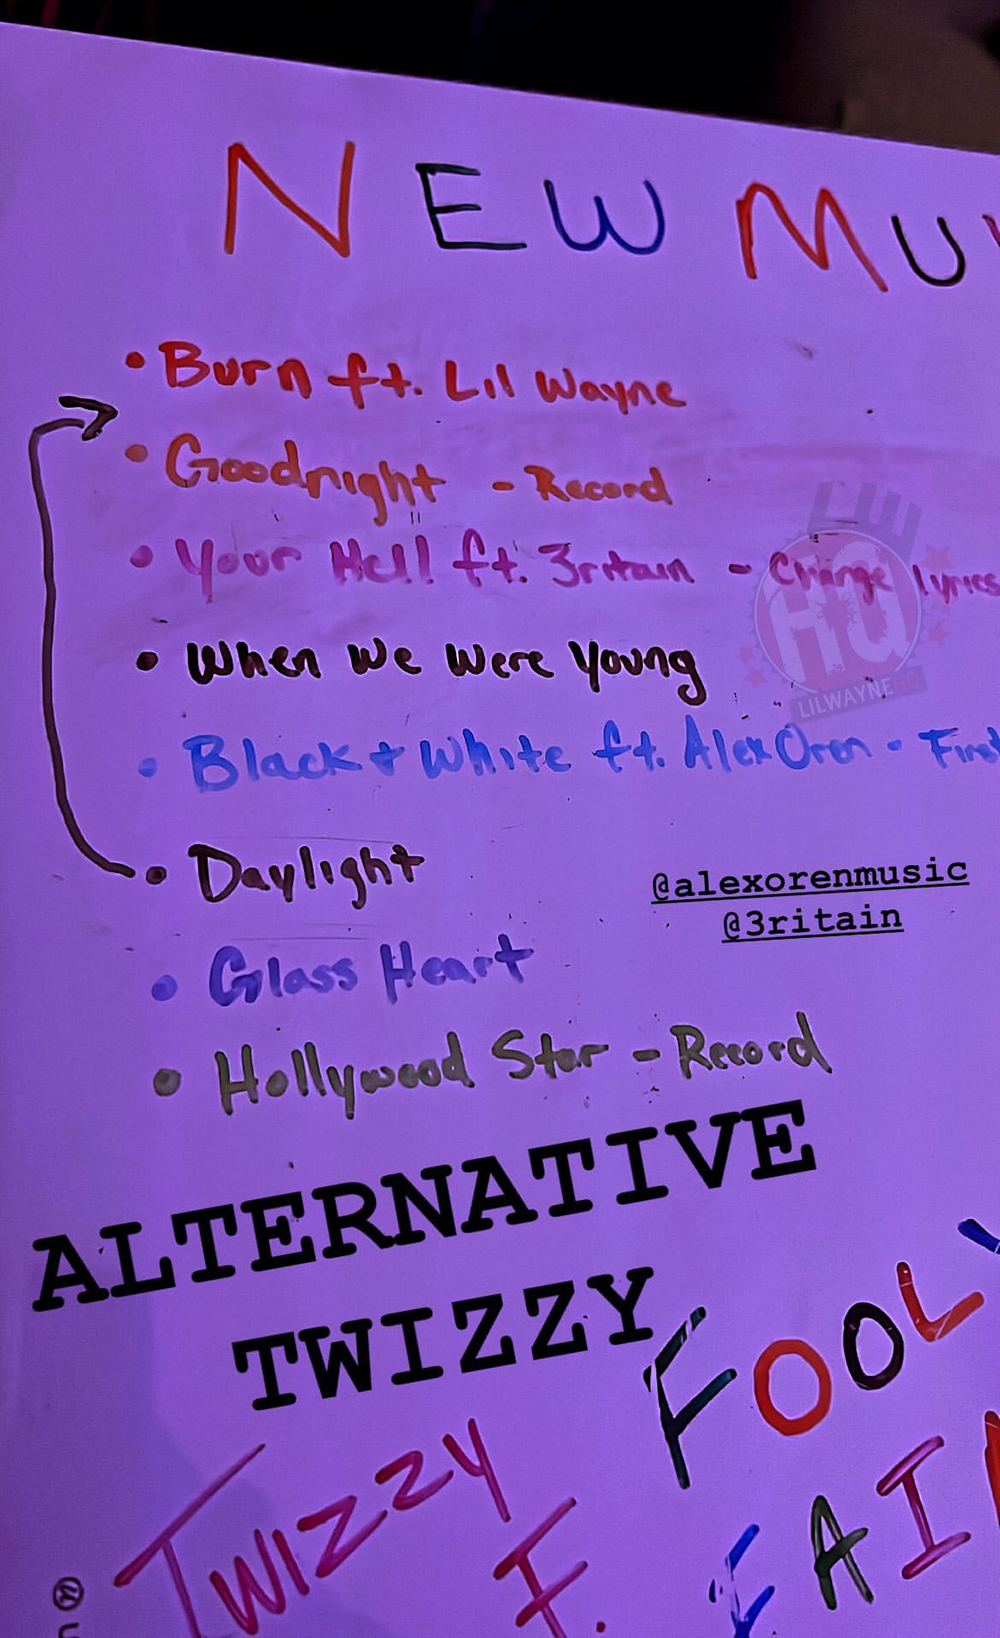 NEW MU
• Burn ft. Lil Wayne
• Goodnight - Record
• Your Hell ft. 3ritain - Change lyrics
• When We Were Young
• Black + White ft. Alex Oren - Final
• Daylight
@alexorenmusic
@3ritain
• Glass Heart
• Hollywood Star - Record
HQ
LILWAYNEHQ
ALTERNATIVE
TWIZZY
FOOLY
FAI
TWIZZY
F.